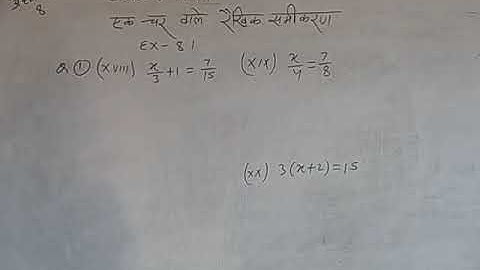 8
एक चर वाले रैखिक समीकरण
Ex - 8.1
Q ① (xviii) x/3 + 1 = 7/15 (xix) x/4 = 7/8
(xx) 3(x+2) = 15